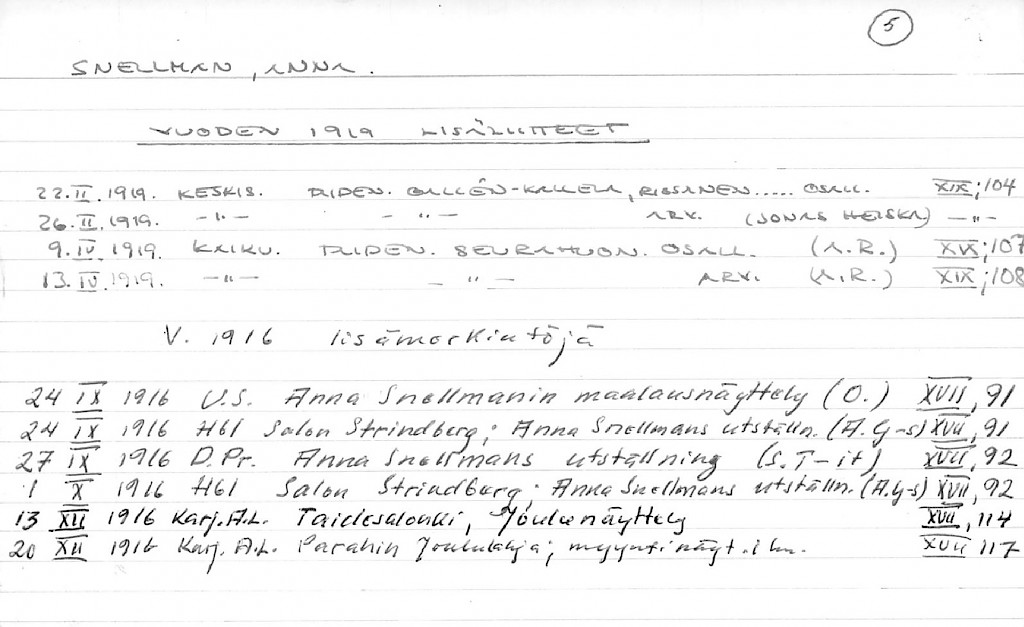 5
SNELLMAN, ANNA.
VUODEN 1919 LISÄLIITTEET
22.II.1919. KESKIS. TAIDEN. GALLÉN-KALLELA, RISSANEN..... OSALL. XIX;104
26.II.1919. —"— —"— ARV. (JONAS HEISKA) —"—
9.IV.1919. KAIKU. TAIDEN. SEURAHUON. OSALL. (A.R.) XIX;107
13.IV.1919. —"— —"— ARV. (A.R.) XIX;108
V. 1916 lisämerkintöjä
24 IX 1916 U.S. Anna Snellmanin maalausnäyttely (O.) XVII, 91
24 IX 1916 Hbl Salon Strindberg; Anna Snellmans utställn. (A. G-s) XVII, 91
27 IX 1916 D.Pr. Anna Snellmans utställning (S. T-it) XVII, 92
1 X 1916 Hbl Salon Strindberg; Anna Snellmans utställn. (A.G-s) XVII, 92
13 XII 1916 Karj.A.L. Taidesalonki, Joulunäyttely XVII, 114
20 XII 1916 Karj. A.L. Parahin Joululahja; myyntinäyt. ilm. XVII 117